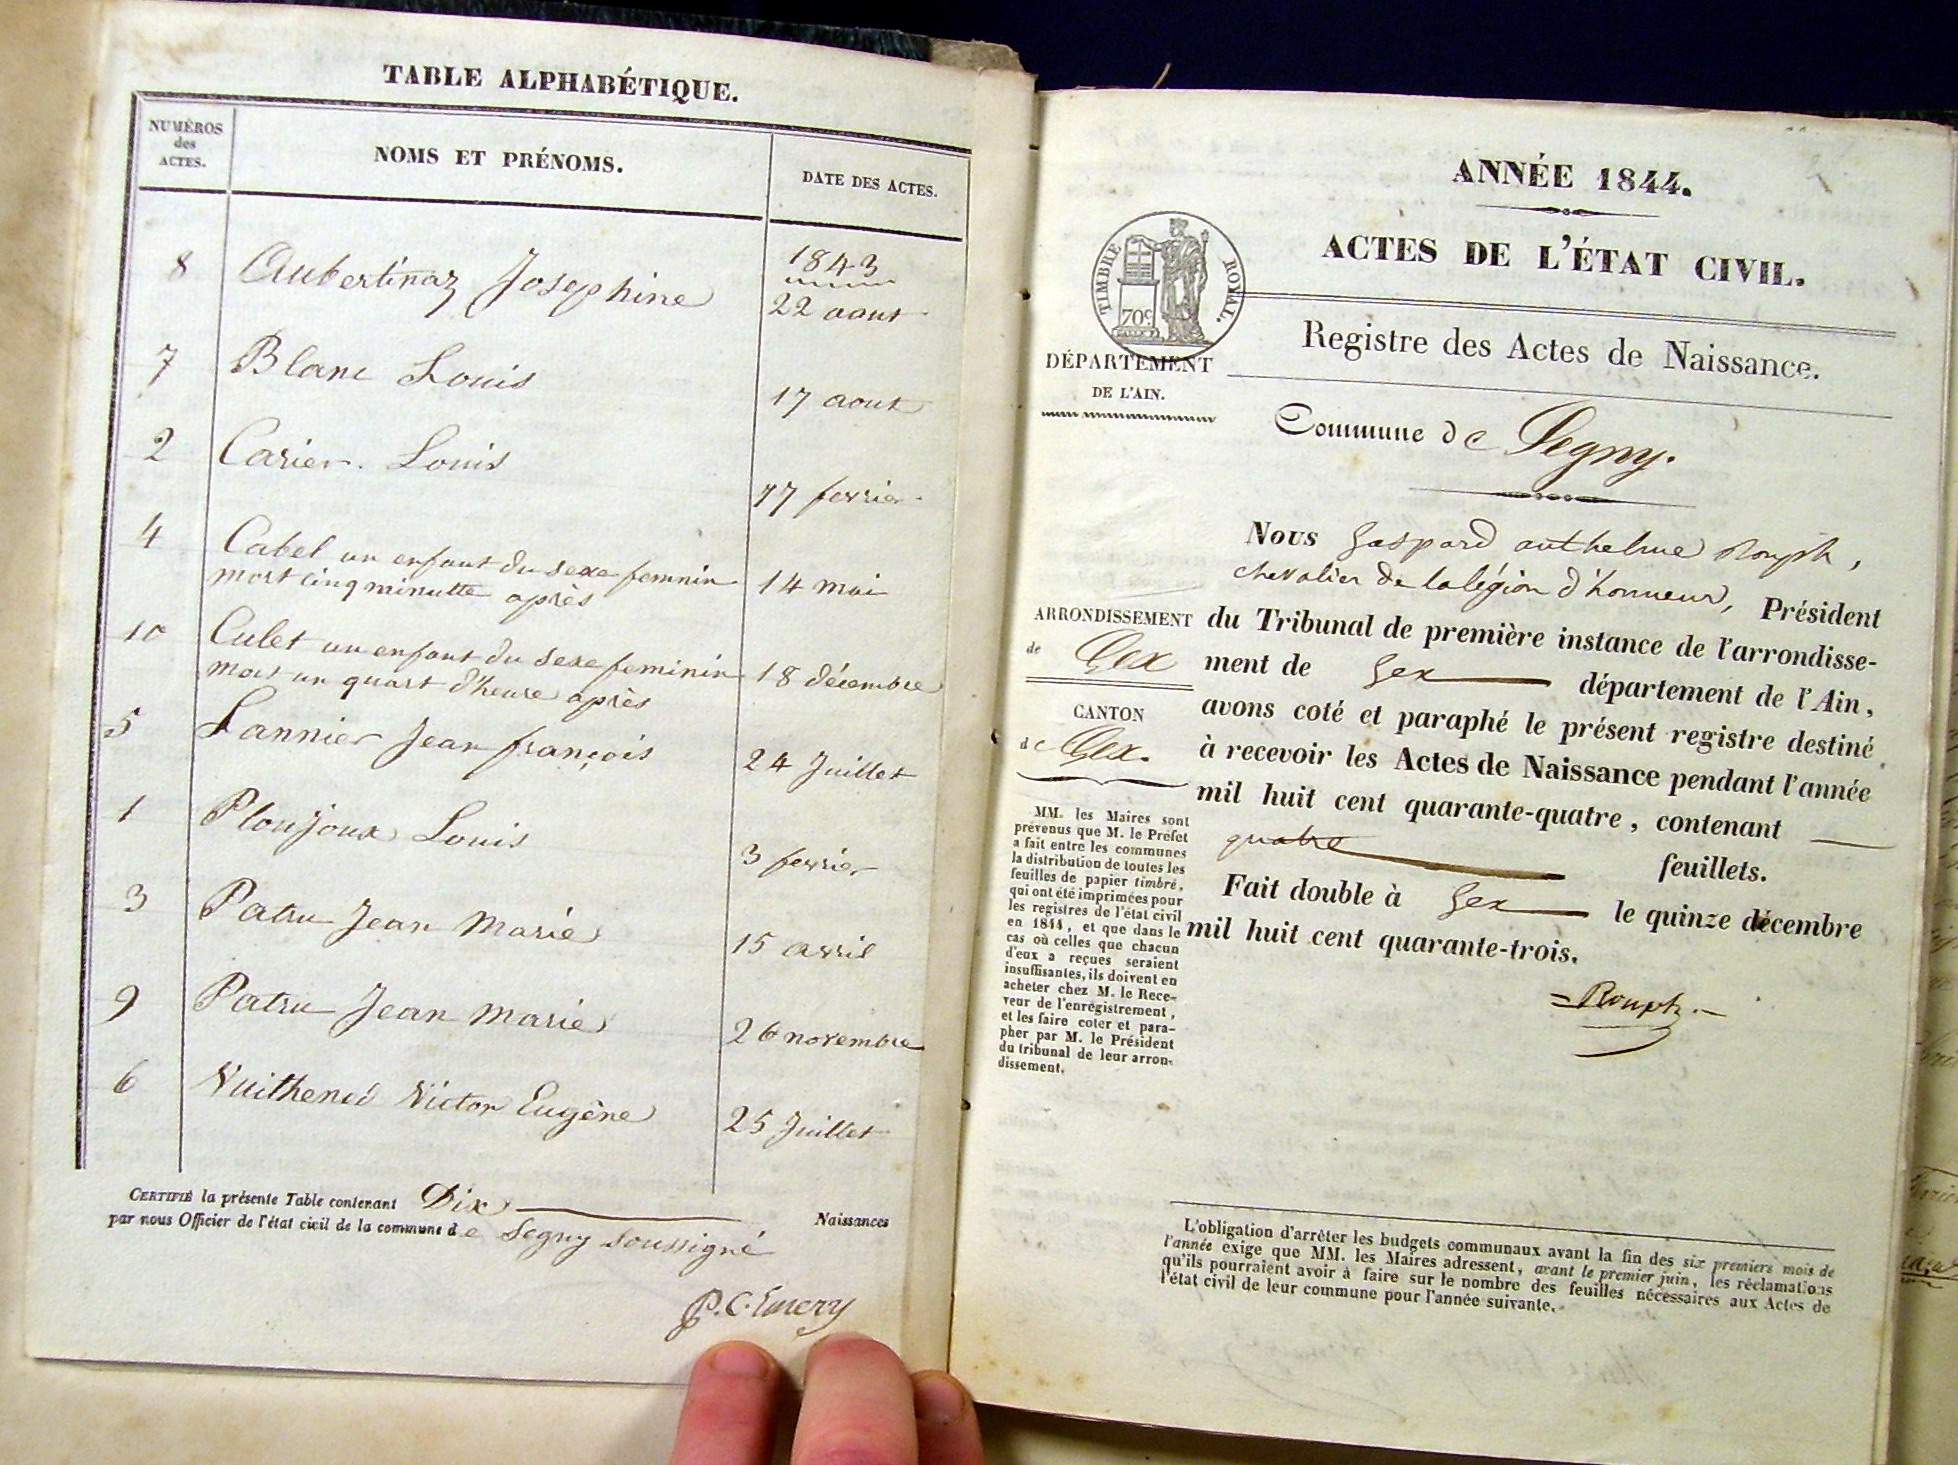 TABLE ALPHABÉTIQUE.
NUMÉROS
des
ACTES.
NOMS ET PRÉNOMS.
DATE DES ACTES.
1843
8 Aubertinaz Josephine 22 aout
7 Blanc Louis 17 aout
2 Carier. Louis 17 fevrier
4 Cabet un enfant du sexe feminin
mort cinq minutte après 14 mai
10 Culet un enfant du sexe feminin
mort un quart d'heure après 18 décembre
5 Lannier Jean françois 24 Juillet
1 Ploujoux Louis 3 fevrier
3 Patru Jean Marie 15 avril
9 Patru Jean Marie 26 novembre
6 Victor Eugène 25 Juillet
CERTIFIÉ la présente Table contenant Dix Naissances
par nous Officier de l'état civil de la commune de Segny soussigné
P. C. Emery
ANNÉE 1844.
ACTES DE L'ÉTAT CIVIL.
TIMBRE ROYAL.
70c
DÉPARTEMENT
DE L'AIN.
Registre des Actes de Naissance.
Commune de Segny.
ARRONDISSEMENT
de Gex
CANTON
de Gex.
MM. les Maires sont
prévenus que M. le Préfet
a fait entre les communes
la distribution de toutes les
feuilles de papier timbré,
qui ont été imprimées pour
les registres de l'état civil
en 1844, et que dans le
cas où celles que chacun
d'eux a reçues seraient
insuffisantes, ils doivent en
acheter chez M. le Rece-
veur de l'enregistrement,
et les faire coter et para-
pher par M. le Président
du tribunal de leur arron-
dissement.
Nous Gaspard anthelme Rouph,
chevalier de la légion d'honneur, Président
du Tribunal de première instance de l'arrondisse-
ment de Gex département de l'Ain,
avons coté et paraphé le présent registre destiné
à recevoir les Actes de Naissance pendant l'année
mil huit cent quarante-quatre, contenant
quatre feuillets.
Fait double à Gex le quinze décembre
mil huit cent quarante-trois.
Rouph.
L'obligation d'arrêter les budgets communaux avant la fin des six premiers mois de
l'année exige que MM. les Maires adressent, avant le premier juin, les réclamations
qu'ils pourraient avoir à faire sur le nombre des feuilles nécessaires aux Actes de
l'état civil de leur commune pour l'année suivante.